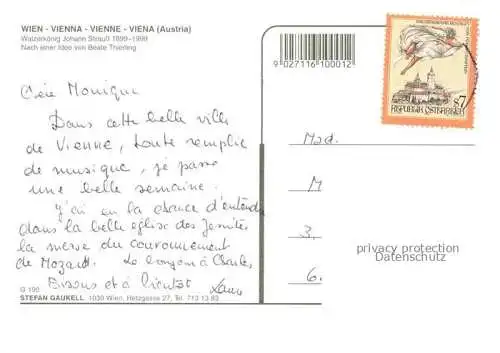 WIEN - VIENNA - VIENNE - VIENA (Austria)
Walzerkönig Johann Strauß 1899-1999
Nach einer Idee von Beate Thierling
9 027116 100012
S7
REPUBLIK ÖSTERREICH
Chère Monique
Dans cette belle ville
de Vienne, toute remplie
de musique, je passe
une belle semaine.
J'ai eu la chance d'entendre
dans la belle église des Jésuites
la messe du couronnement
de Mozart. Le bonjour à Charles,
Bisous et à bientôt
Mad.
M
3,
6.
privacy protection
Datenschutz
G 190
STEFAN GAUKELL 1030 Wien, Hetzgasse 27, Tel. 713 13 83